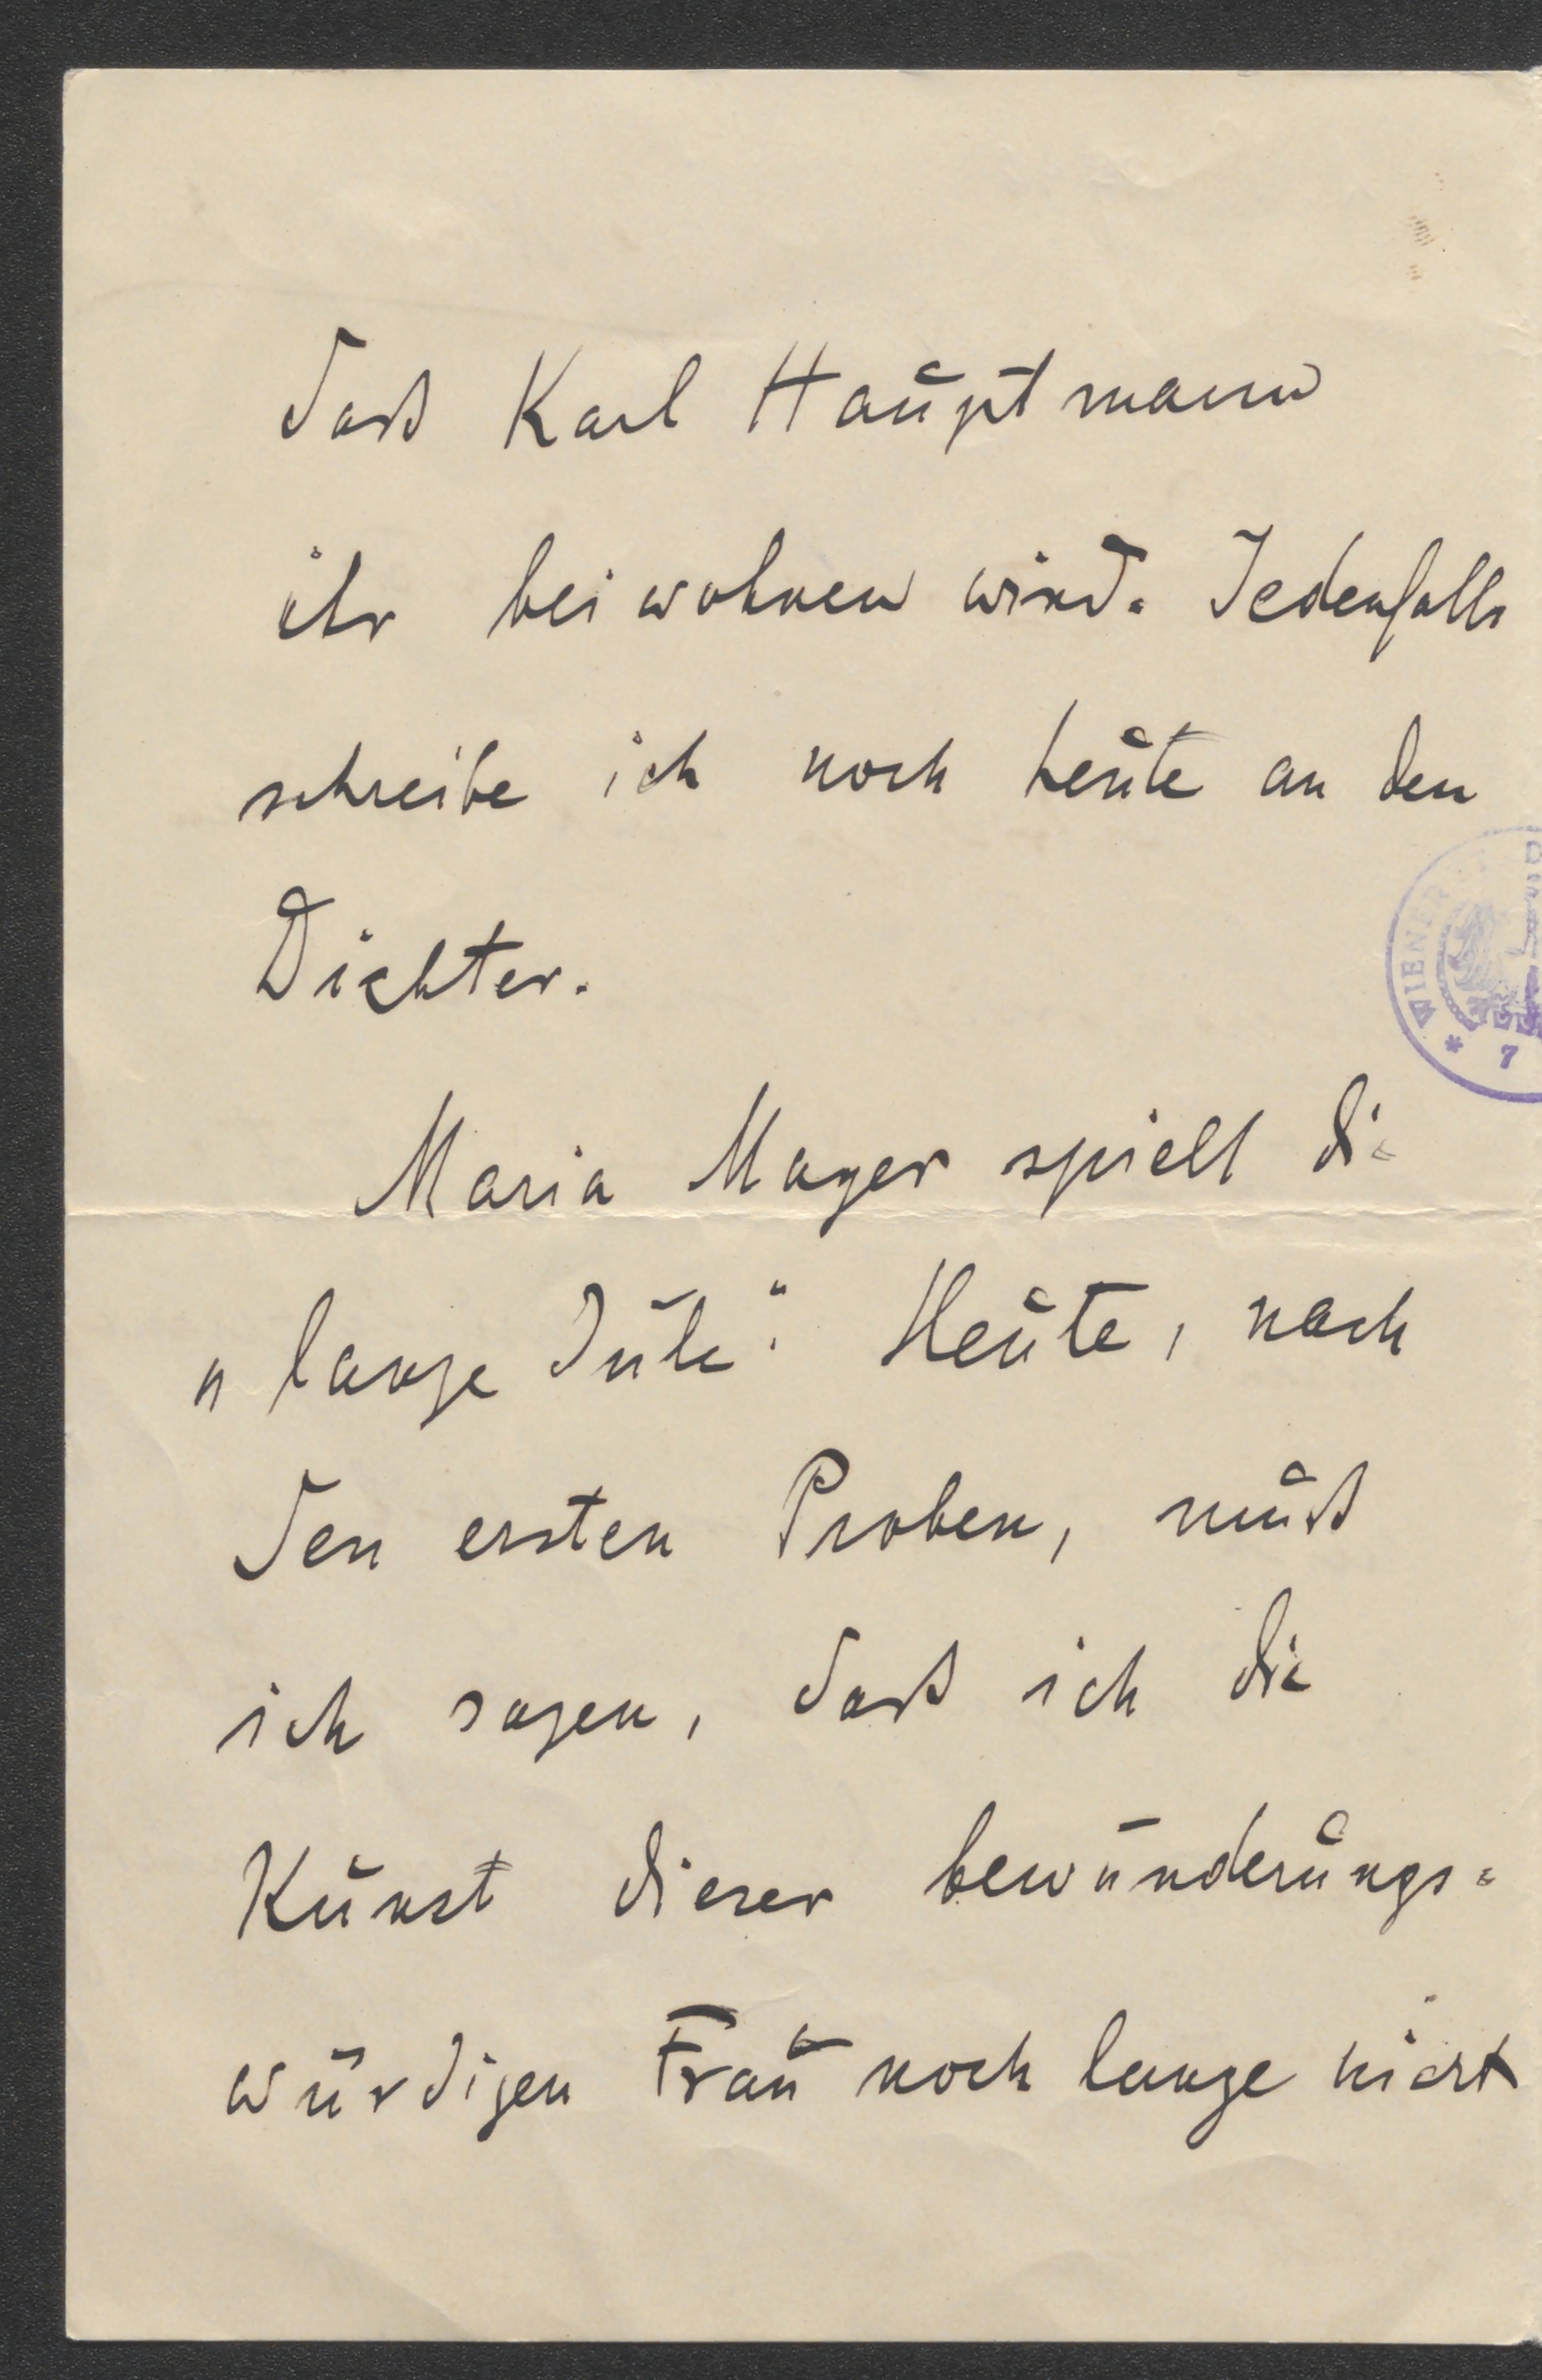 daß Karl Hauptmann
ihr beiwohnen wird. Jedenfalls
schreibe ich noch heute an den
Dichter.
WIENER
* 7
Maria Mayer spielt die
„lange Jule“. Heute, nach
den ersten Proben, muß
ich sagen, daß ich die
Kunst dieser bewunderungs=
würdigen Frau noch lange nicht